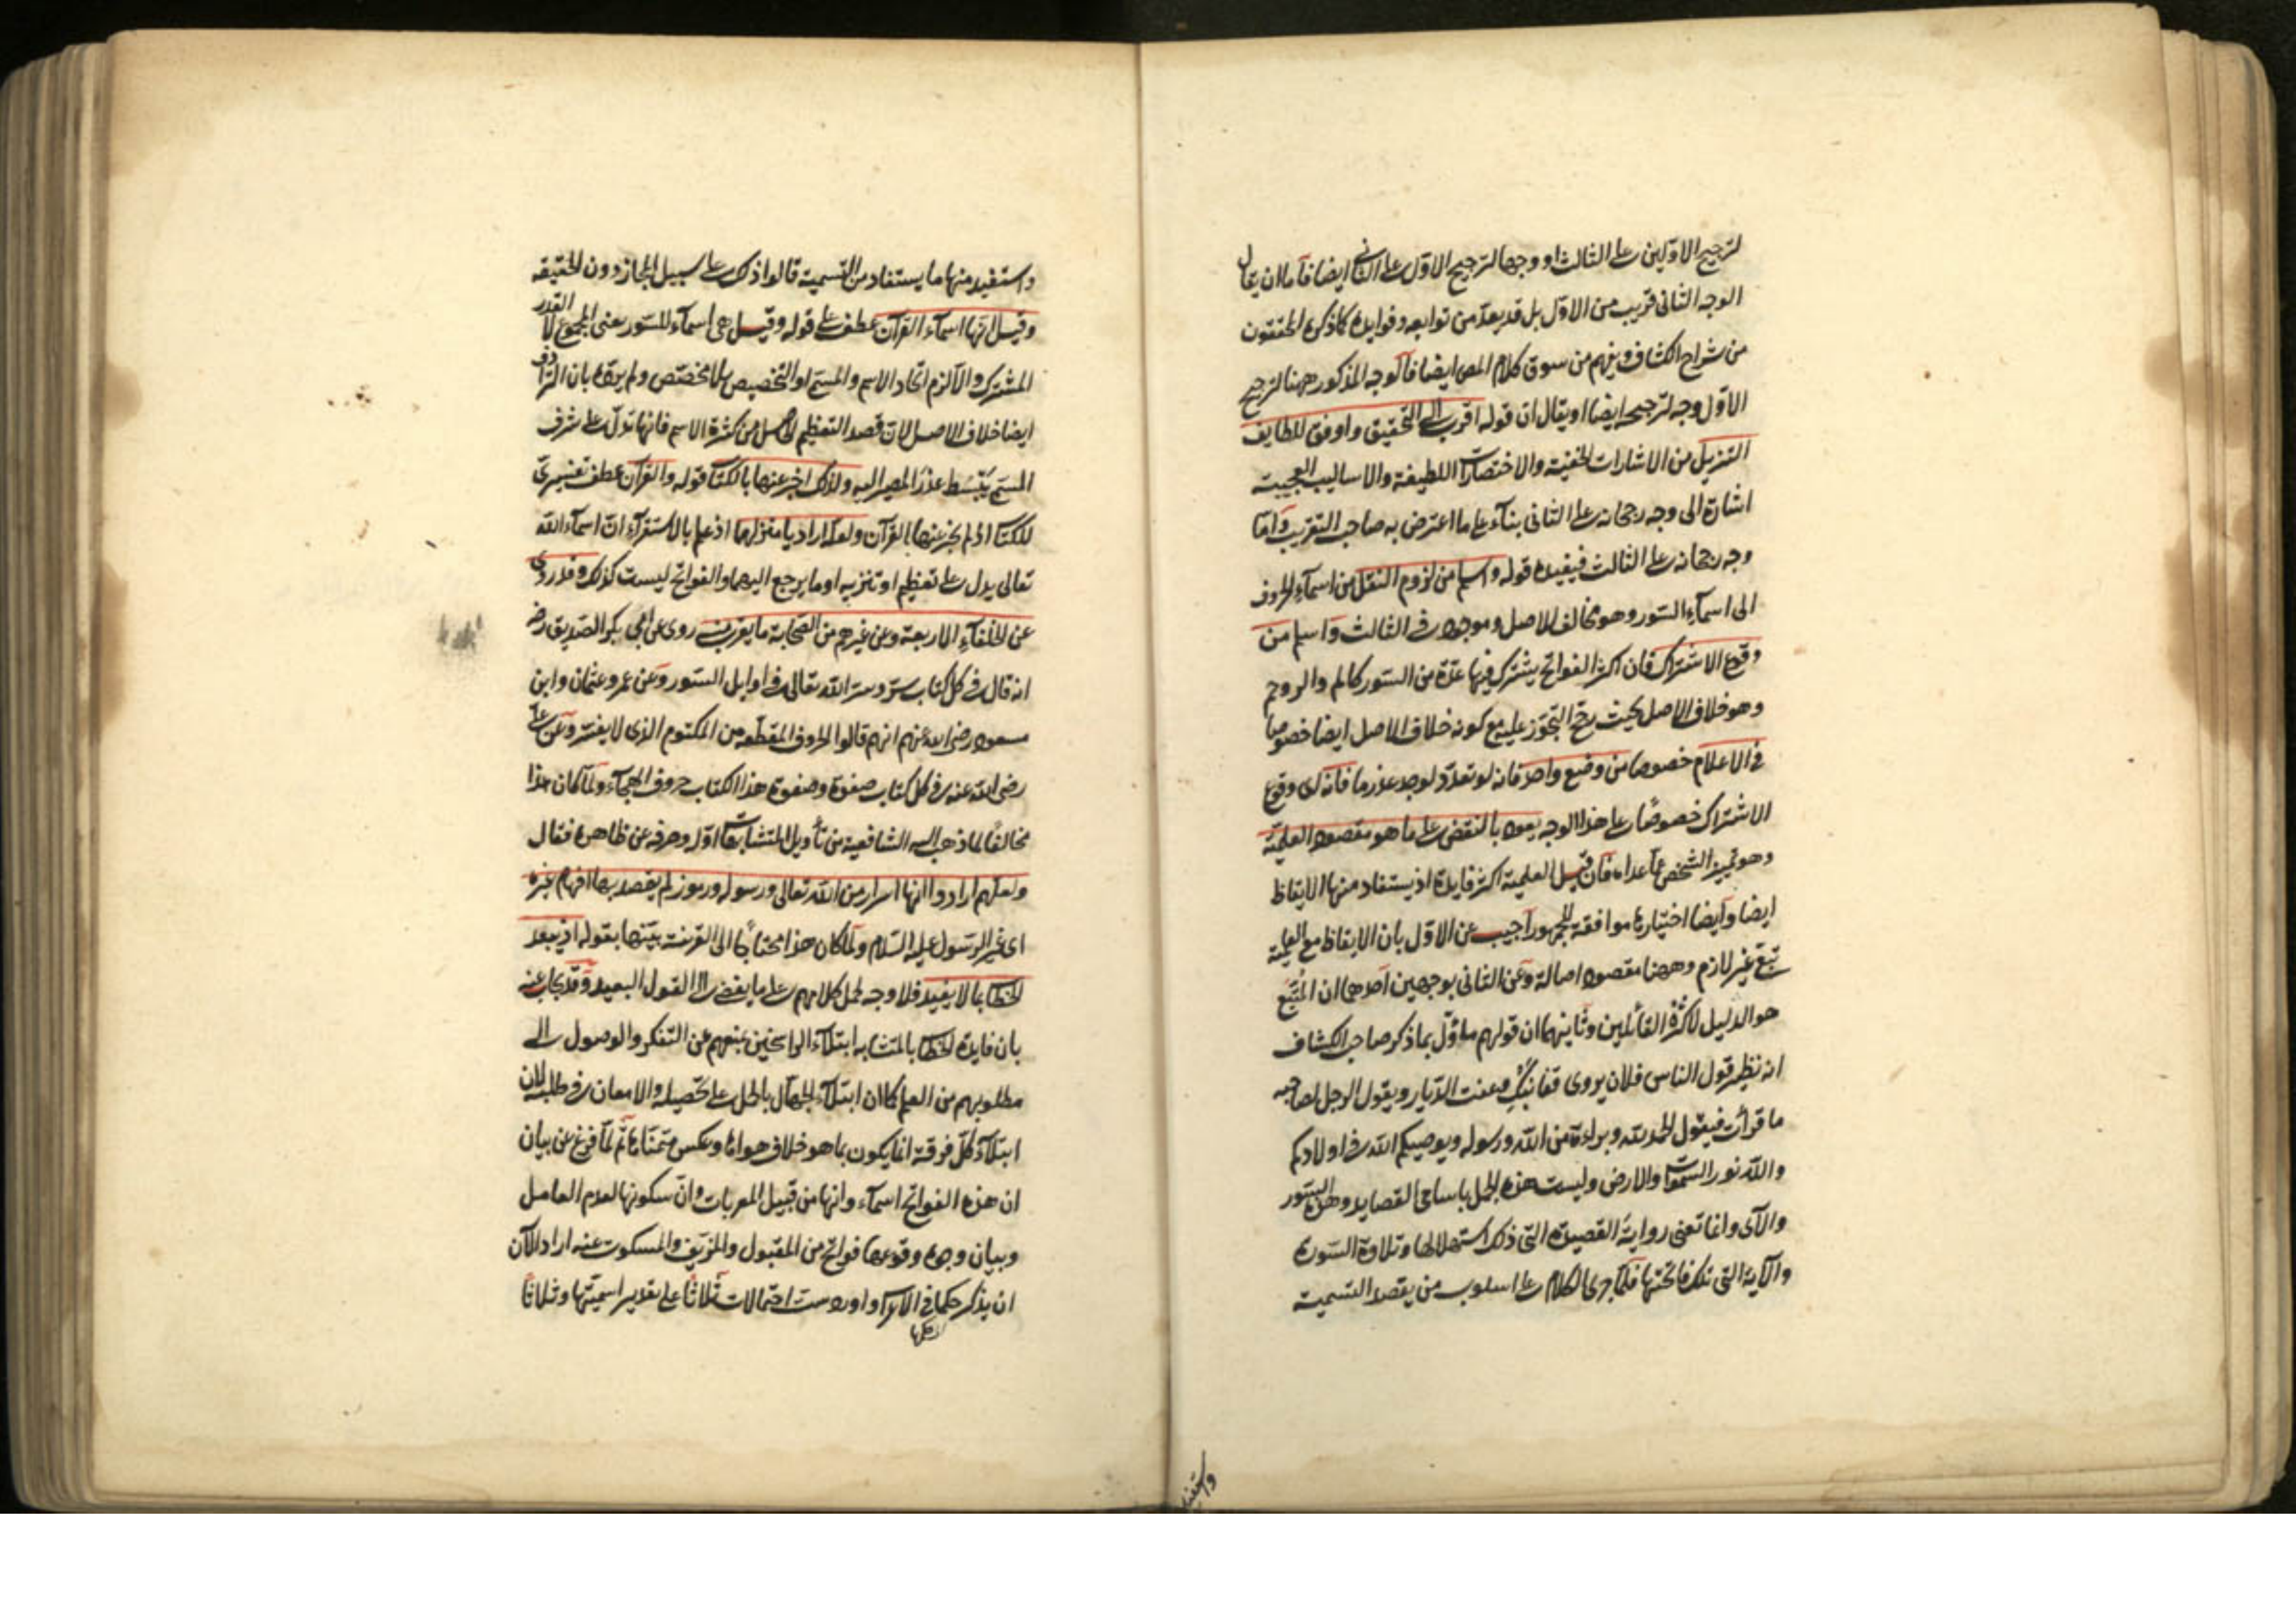 لترجيح الاولين على الثالث او وجها لترجيح الاول على الثاني ايضا فاما ان يقال
الوجه الثاني قريب من الاول بل قد يعد من توابعه وفوايده كما ذكره المحققون
من شراح الكشاف ويفهم من سوق كلام المص ايضا فالوجه المذكور ههنا لترجيح
الاول وجه لترجيحه ايضا او يقال ان قوله اقرب الى التحقيق واوفق للطايف
التنزيل من الاشارات الخفية والاختصارات اللطيفة والاساليب العجيبة
اشارة الى وجه رجحانه على الثاني بناء على ما اعترض به صاحب التقريب واما
وجه رجحانه على الثالث فيفيده قوله واسلم من لزوم النقل من اسماء الحروف
الى اسماء السور وهو مخالف للاصل وموجود في الثالث واسلم من
وقوع الاشتراك فان اكثر الفواتح يشترك فيها عدة من السور كالم والر وحم
وهو خلاف الاصل بحيث رجح التجوز عليه مع كونه خلاف الاصل ايضا خصوصا
في الاعلام خصوصا من وضع واحد فانه لو تعدد لوجد عذر ما فانه اى وقوع
الاشتراك خصوصا على هذا الوجه يعود بالنقض على ما هو مقصود العلمية
وهو تمييز الشخص عما عداه فان قيل العلمية اكثر فايدة اذ يستفاد منها الايقاظ
ايضا وايضا اختيارها موافقة للجمهور اجيب عن الاول بان الايقاظ مع العلمية
تبع غير لازم وههنا مقصود اصالة وعن الثاني بوجهين احدهما ان المتبع
هو الدليل لا كثرة القائلين وثانيهما ان قولهم ماؤل بما ذكر صاحب الكشاف
انه نظير قول الناس فلان يروى قفا نبك وعفت الديار ويقول الرجل لصاحبه
ما قرأت فيقول الحمد لله وبراءة من الله ورسوله ويوصيكم الله في اولادكم
والله نور السموات والارض وليست هذه الجمل باسامى القصايد وهذه السور
والآى وانما تعنى رواية القصيدة التى ذلك استهلالها وتلاوة السورة
والآية التى تلك فاتحتها فلما جرى الكلام على اسلوب من يقصد التسمية
واستفيد
واستفيد منها ما يستفاد من التسمية قالوا ذلك على سبيل المجاز دون الحقيقه
وقيل انها اسماء القرآن عطف على قوله وقيل هى اسماء للسور يعنى المجموع لا القدر
المشترك والا لزم اتحاد الاسم والمسمى او التخصيص بلا مخصص ولم يرده بان الترادف
ايضا خلاف الاصل لان قصد التعظيم الحاصل من كثرة الاسم فانها تدل على شرف
المسمى يبسط عذر المصير اليه ولذلك اخبر عنها بالكتاب قوله والقرآن عطف تفسيرى
للكتاب اذ لم يخبر عنها بالقرآن ولعله اراد يا منزلهما اذ علم بالاستقراء ان اسماء الله
تعالى يدل على تعظيم او تنزيه او ما يرجع اليهما والفواتح ليست كذلك وقد روى
عن الخلفاء الاربعة وعن غيرهم من الصحابة ما يقرب منه روى عن ابى بكر الصديق رضه
انه قال في كل كتاب سر وسر الله تعالى في اوايل السور وعن عمر وعثمان وابن
مسعود رضى الله عنهم انهم قالوا الحروف المقطعه من المكتوم الذى لا يفسر وعن على
رضى الله عنه في كل كتاب صفوة وصفوة هذا الكتاب حروف الهجاء ولما كان هذا
مخالفا لما ذهب اليه الشافعية من تأويل المتشابهات اوله وصرفه عن ظاهره فقال
ولعلهم ارادوا انها اسرار بين الله تعالى ورسوله ورموز لم يقصد بها افهام غيره
اى غير الرسول عليه السلام ولما كان هذا محتاجا الى القرينة بينها بقوله اذ يبعد
الخطاب بما لا يفيد فلا وجه لحمل كلامهم على ما يفضى الى القول البعيد وقد يجاب عنه
بان فايدة الخطاب بالمتشابه ابتلاء الراسخين بمنعهم عن التفكر والوصول الى
مطلوبهم من العلم كما ان ابتلاء الجهال بالحمل على تحصيله والامعان في طلبه لان
ابتلاء كل فرقة انما يكون بما هو خلاف هواها وعكس متمناها ثم لما فرغ عن بيان
ان هذه الفواتح اسماء وانها من قبيل المعربات وان سكونها لعدم العامل
وبيان وجوه وقوعها فواتح من المقبول والمزيف والمسكوت عنه اراد الآن
ان يذكر حكمها في الاعراب واورد ست احتمالات ثلاثا على تقدير اسميتها وثلاثا